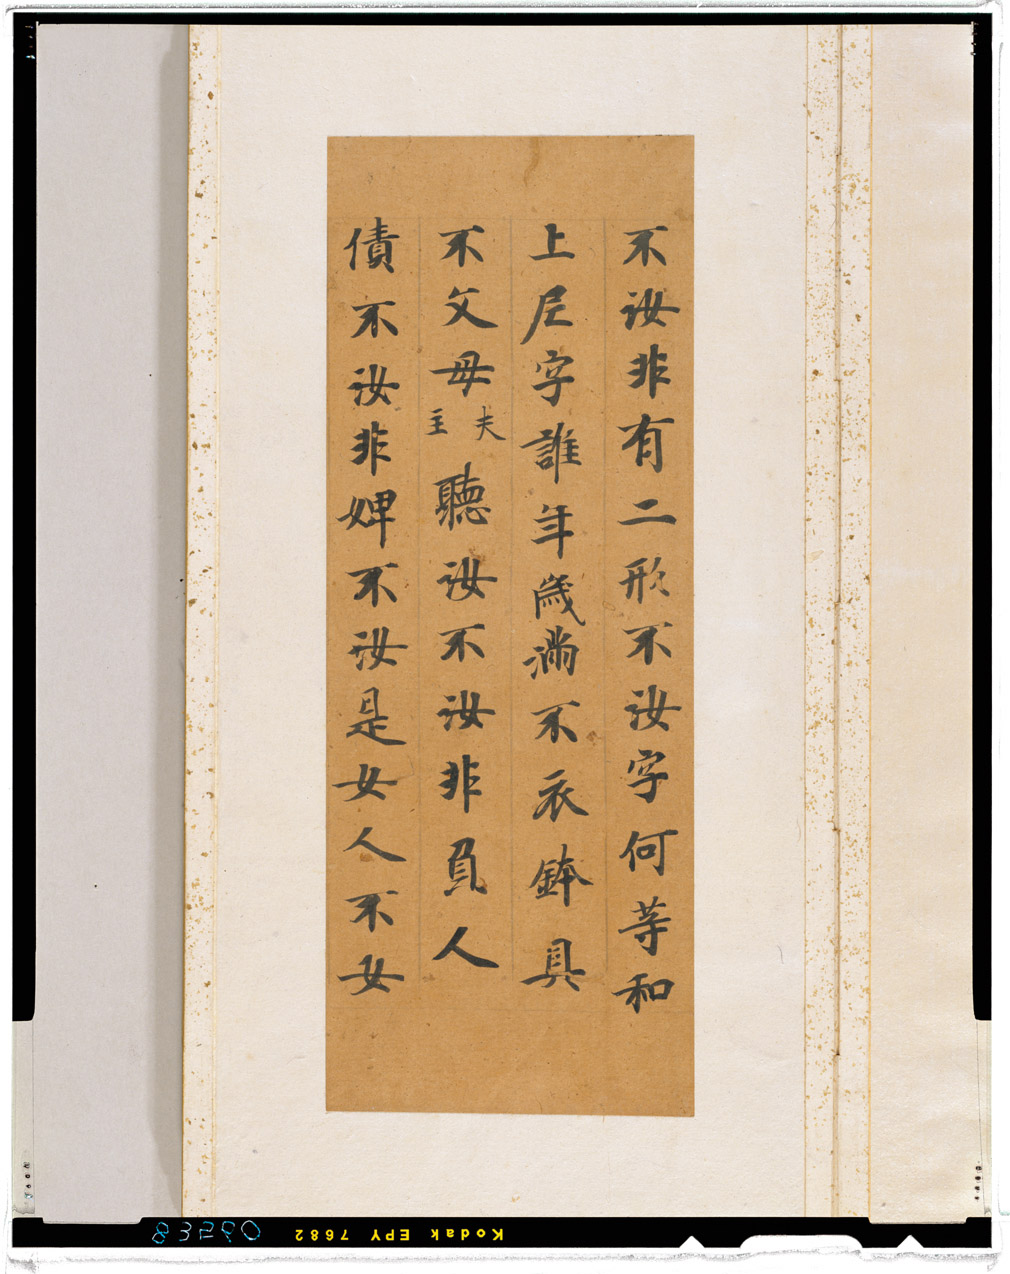 不汝非有二形不汝字何等和
上尼字誰年歲滿不衣鉢具
不父母夫主聽汝不汝非負人
債不汝非婢不汝是女人不女
83550
Kodak EPY 7682